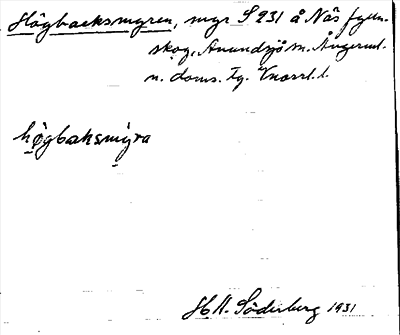 Högbacksmyren, myr S 231 å Näs fjäll-
skog, Anundsjö sn. Ångerml.
n. doms. Tg. Vnorrl. l.
högbacksmýra
H. Söderberg 1931